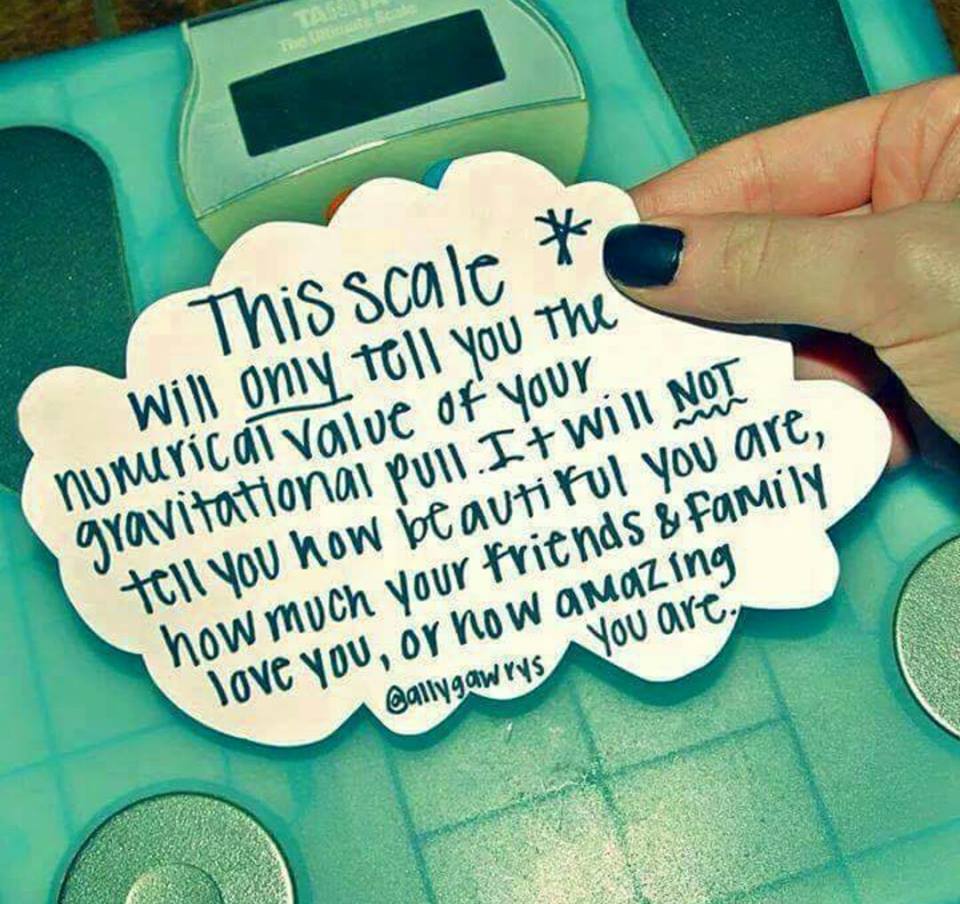 TANITA
The Ultimate Scale
This scale *
will only tell you the
numerical value of your
gravitational pull. It will NOT
tell you how beautiful you are,
how much your friends & family
love you, or how amazing
you are.
@allygawrys